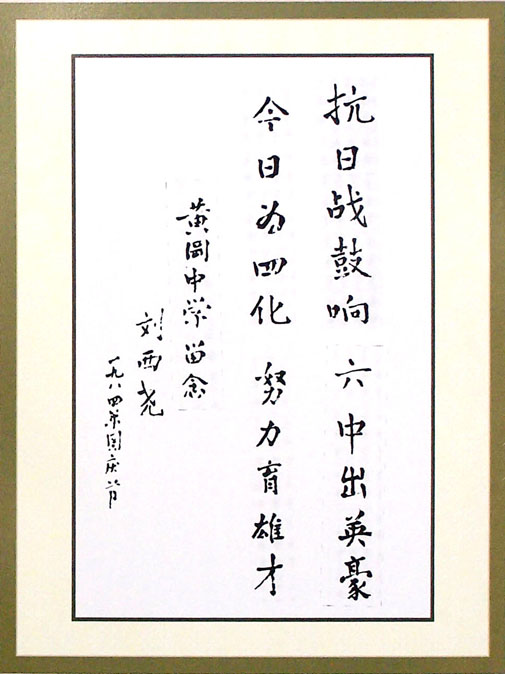 抗日战鼓响 六中出英豪
今日为四化 努力育雄才
黄冈中学留念
刘西尧
一九八四年国庆节